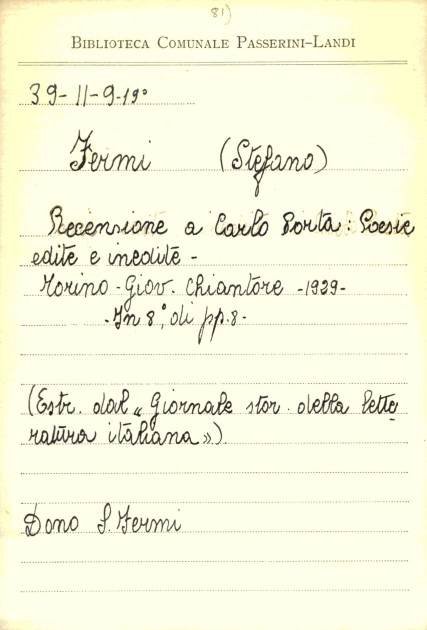 81)
BIBLIOTECA COMUNALE PASSERINI-LANDI
39-11-9-19°
Fermi (Stefano)
Recensione a Carlo Porta: Poesie
edite e inedite -
Torino - Giov. Chiantore - 1929 -
- In 8°, di pp. 8 -
(Estr. dal "Giornale stor. della lette
ratura italiana»).
Dono S. Fermi